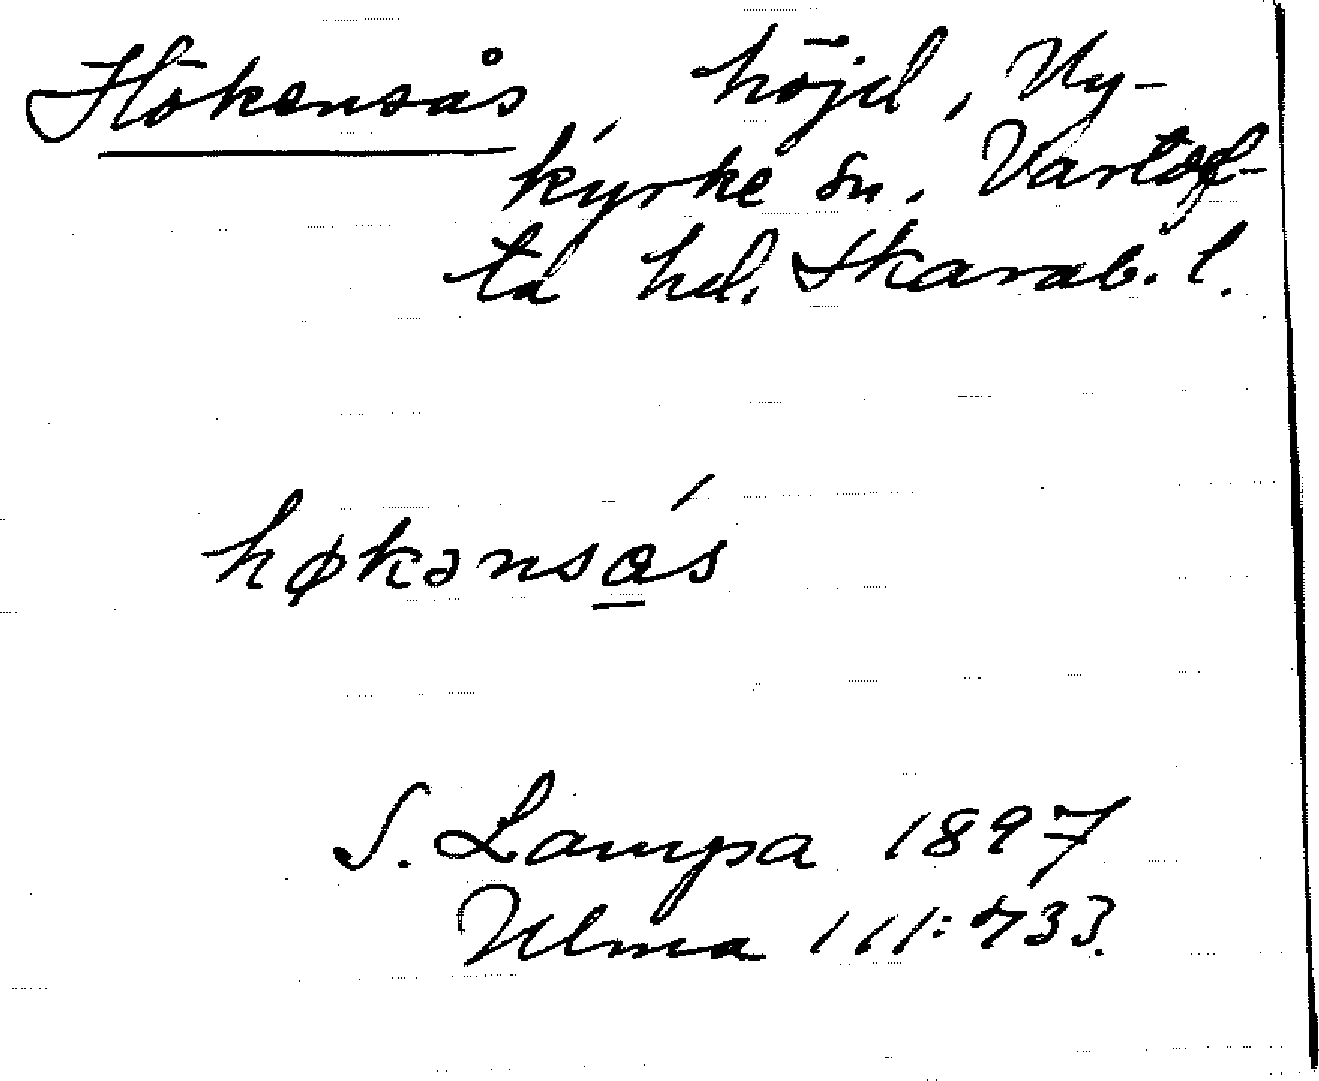 Hökensås, höjd, Ny-
kyrke sn, Vartof-
ta hd. Skarab. l.
høkənsa̲ś
S. Lampa 1897
Ulma 111:733.